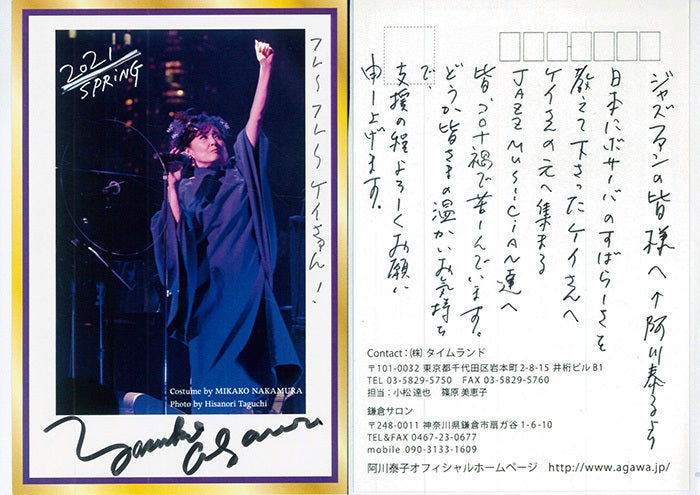 2021
SPRiNG
フレーフレーケイさん!
Costume by MIKAKO NAKAMURA
Photo by Hisanori Taguchi
Yasuko Agawa
ジャズファンの皆様へ↑阿川泰子より
日本にボサノバのすばらしさを
教えて下さったケイさんへ
ケイさんの元へ集まる
JAZZ MUSiCiAN達へ
皆、コロナ禍で苦しんでいます。
どうか皆さまの温かいお気持ち
で、
支援の程よろしくお願い
申し上げます。
Contact : ㈱ タイムランド
〒101-0032 東京都千代田区岩本町 2-8-15 井桁ビル B1
TEL 03-5829-5750 FAX 03-5829-5760
担当 : 小松 達也 篠原 美恵子
鎌倉サロン
〒248-0011 神奈川県鎌倉市扇ガ谷 1-6-10
TEL&FAX 0467-23-0677
mobile 090-3133-1609
阿川泰子オフィシャルホームページ http://www.agawa.jp/